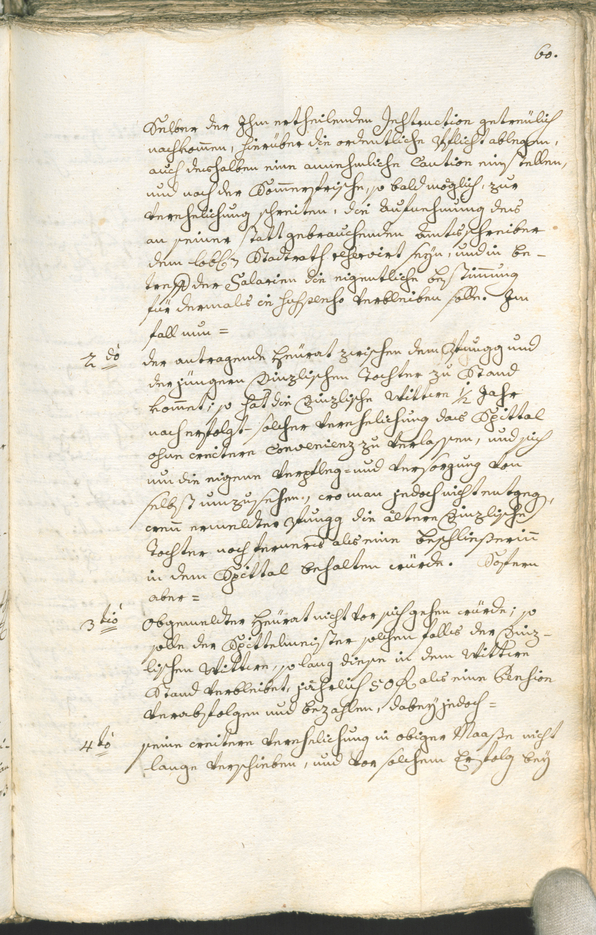 60.
Selber der Ihm ertheilenden Instruction getreülich
nachkommen, hierüber die ordentliche Pflicht ablegen,
auch deshalben eine annehmliche Caution einstellen,
und nach der Sommersfrische, so bald möglich, zur
Verehelichung schreiten, die Aufnehmung des
an seiner statt gebrauchenden Amtsschreiber
dem löbl. Stadtrath reserviert seyn, und in be-
treff der Salarien die eigentliche bestimmung
für dermalen in suspenso verbleiben solle. Im
fall nun =
2 do der antragende Heürat zwischen dem Stungg und
der jüngern Hinzlischen Tochter zu Stand
kommet; so hat die Hinzlische Wittwe 1/2 Jahr
nach erfolgt-solcher verehelichung das Spittal
ohne weitere Convenienz zu verlassen, und sich
um die eigene Verpfleg- und versorgung von
selbst umzusehen, wo man jedoch nicht entgeg,
wenn ermeldter Stungg die ältere Hinzlische
Tochter noch ferners als eine beschließerinn
in dem Spittal behalten würde. Sofern
aber =
3 tio Obgemeldter Heürat nicht vor sich gehen würde; so
solle der Spittelmeister solchen falls der Hinz-
lischen Wittwe, so lang diese in dem Wittwe
Stand verbleibet, jährlich 50 fl als eine Pension
verabfolgen und bezahlen, dabey jedoch =
4 to seine weitere verehelichung in obiger Maaße nicht
lange verschieben, und vor solchem Erfolg bey